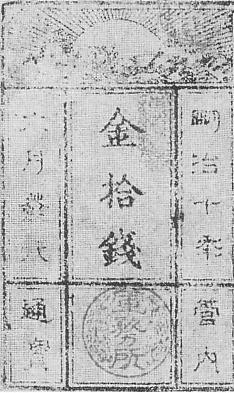 明治十年
管内
金拾錢
軍務所
六月發行
通寶